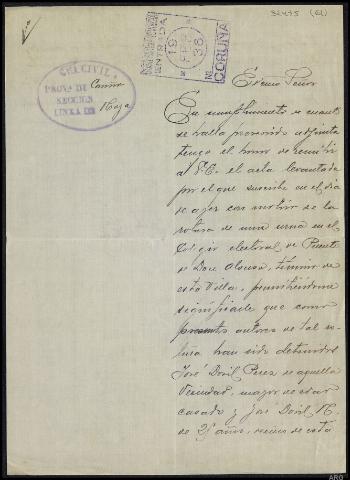 32475 (61)
ENTRADA
19
36
CORUÑA
GIA CIVIL
PROVA DE Coruña
SECCION
LINEA DE Noya
Excmo Señor
En cumplimiento a cuanto
se halla prevenido adjunta
tengo el honor de remitir
a V.E. el acta levantada
por el que suscribe en el dia
de ayer con motivo de la
rotura de una urna en el
Colegio electoral de Puente
de Don Alonso, término de
esta Villa, permitiéndome
significarle que como
presuntos autores de tal
han sido detenidos
José Perez de aquella
Vecindad, mayor de edad
casado y José
de 25 años, vecino de esta
ARG